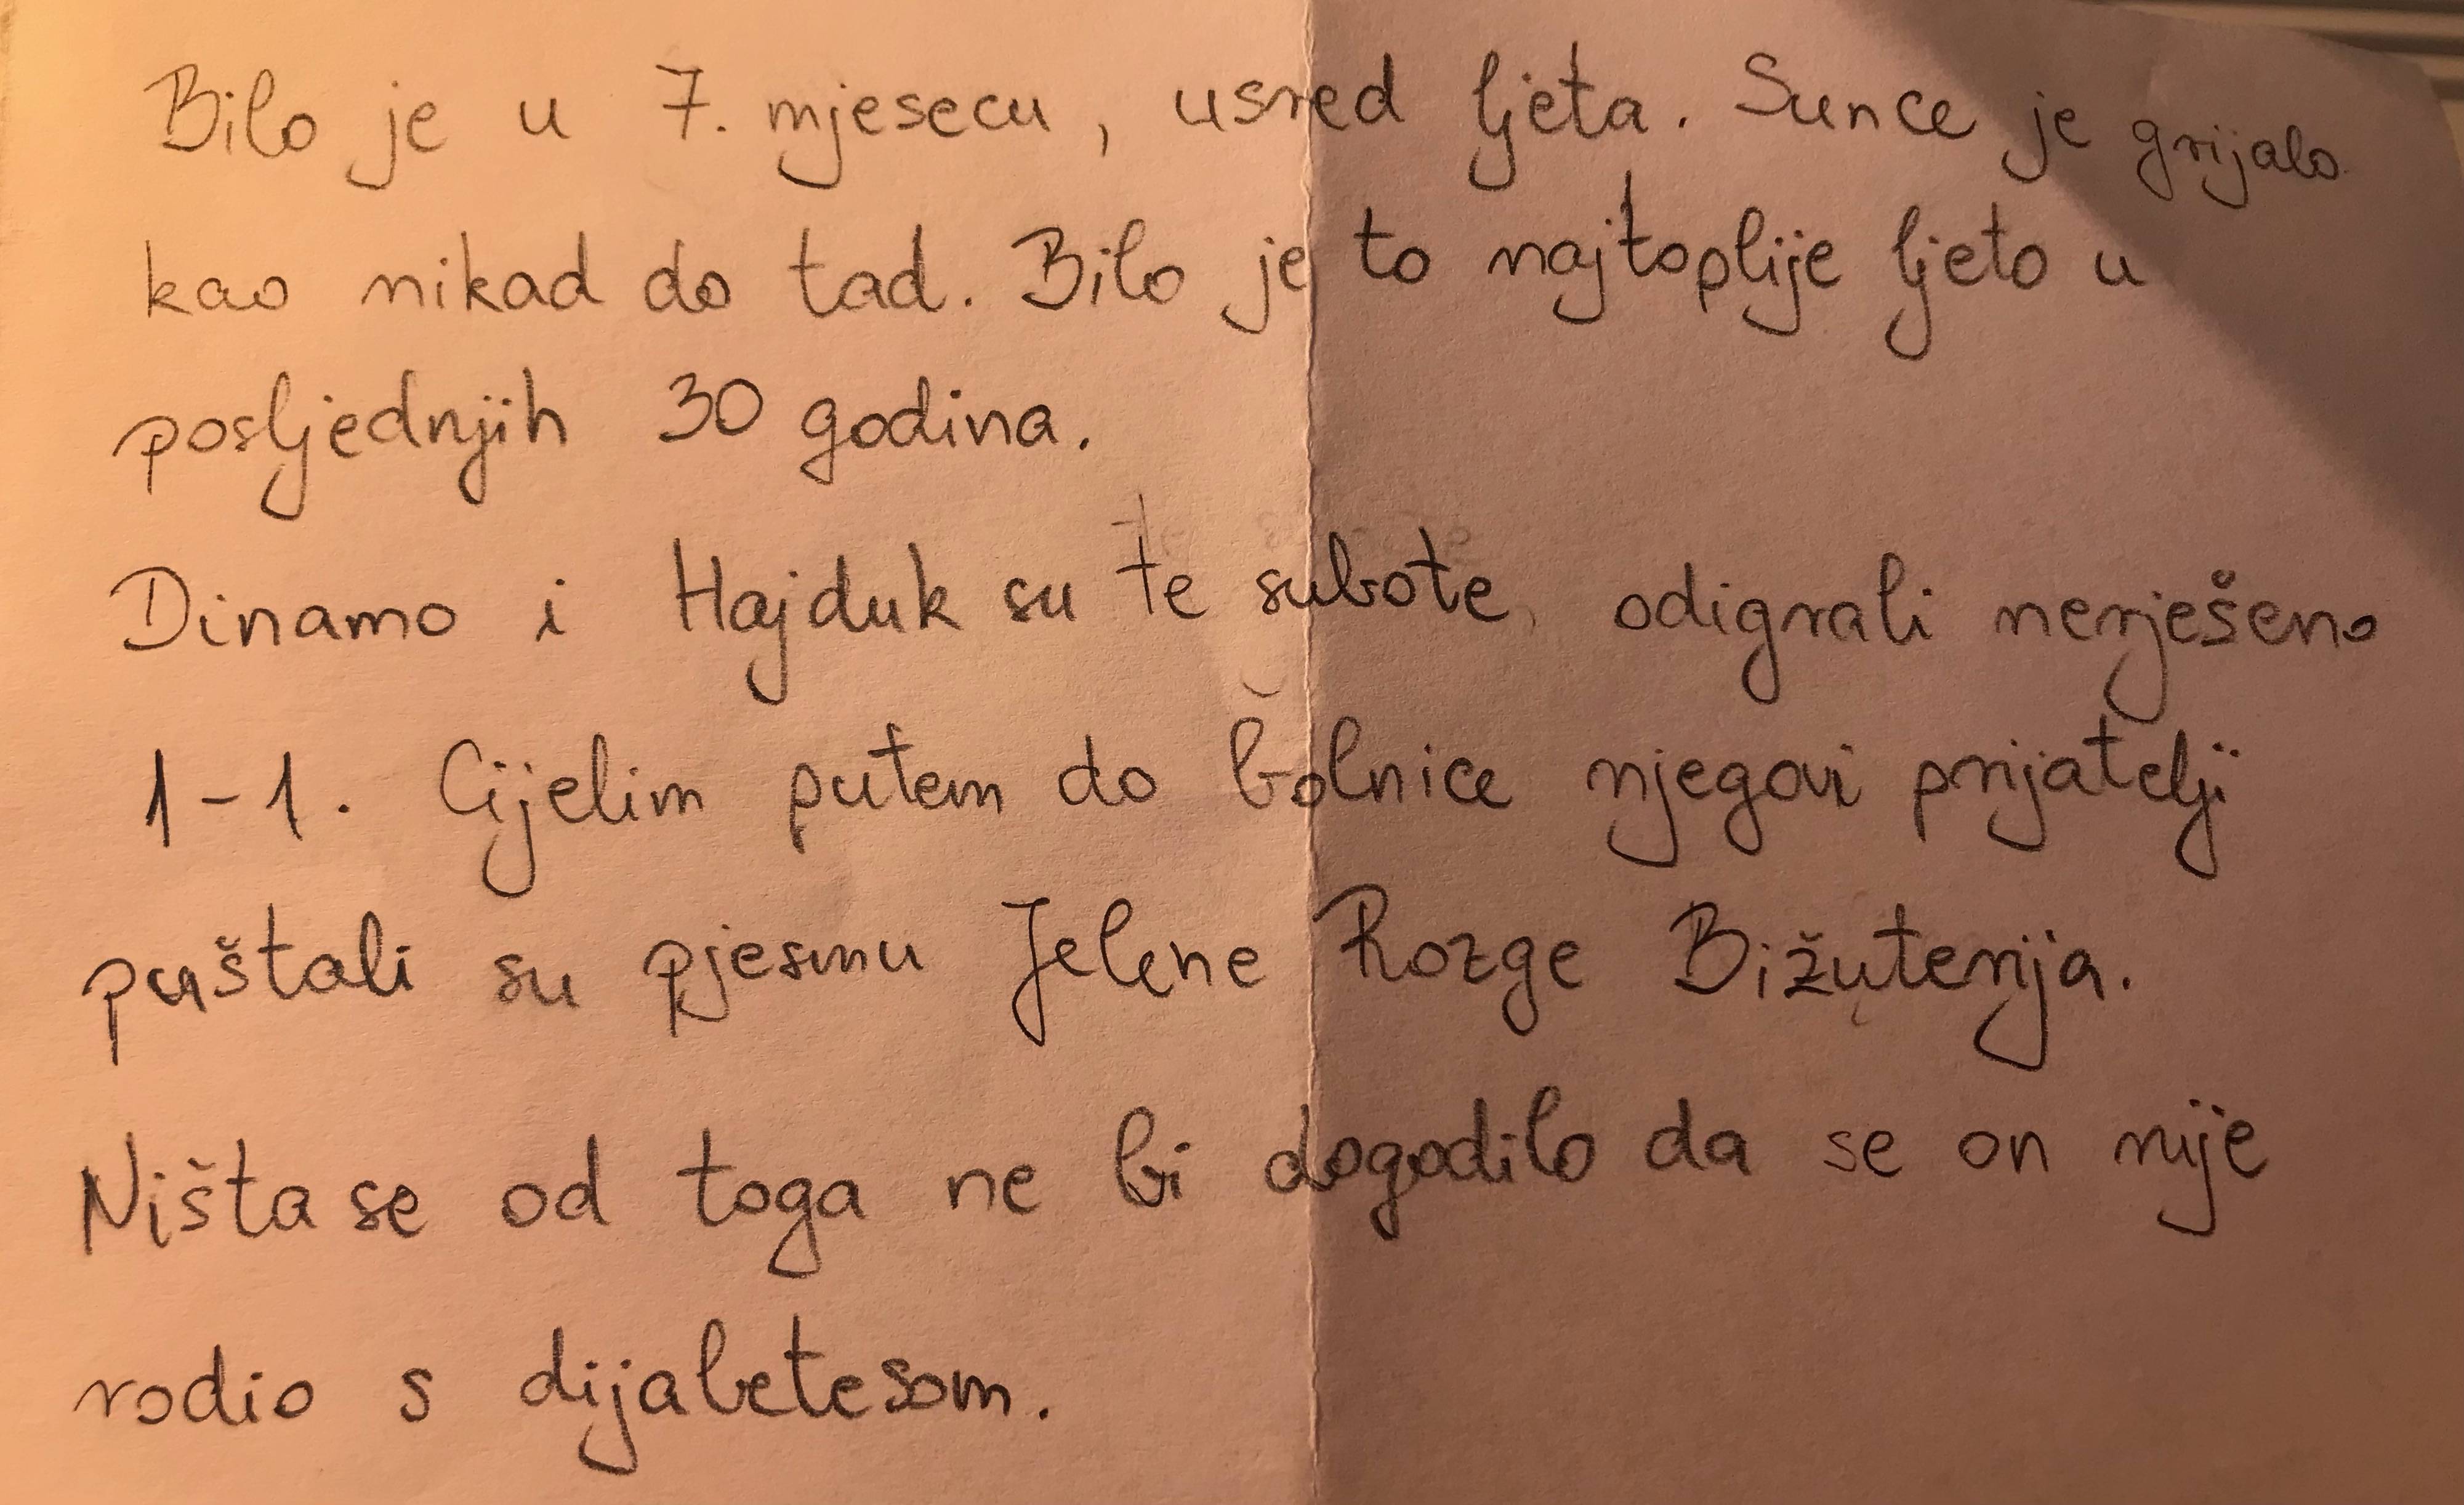 Bilo je u 7. mjesecu, usred ljeta. Sunce je grijalo
kao nikad do tad. Bilo je to najtoplije ljeto u
posljednjih 30 godina.
Dinamo i Hajduk su te subote odigrali nerješeno
1-1. Cijelim putem do bolnice njegovi prijatelji
puštali su pjesmu Jelene Rozge Bižuterija.
Ništa se od toga ne bi dogodilo da se on nije
rodio s dijabetesom.